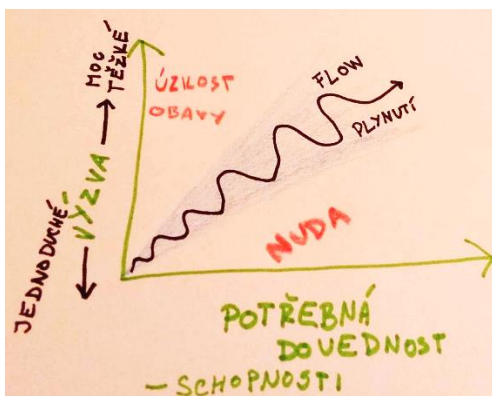 MOC
TĚŽKÉ
VÝZVA
JEDNODUCHÉ
ÚZKOST
OBAVY
FLOW
PLYNUTÍ
NUDA
POTŘEBNÁ
DOVEDNOST
- SCHOPNOSTI